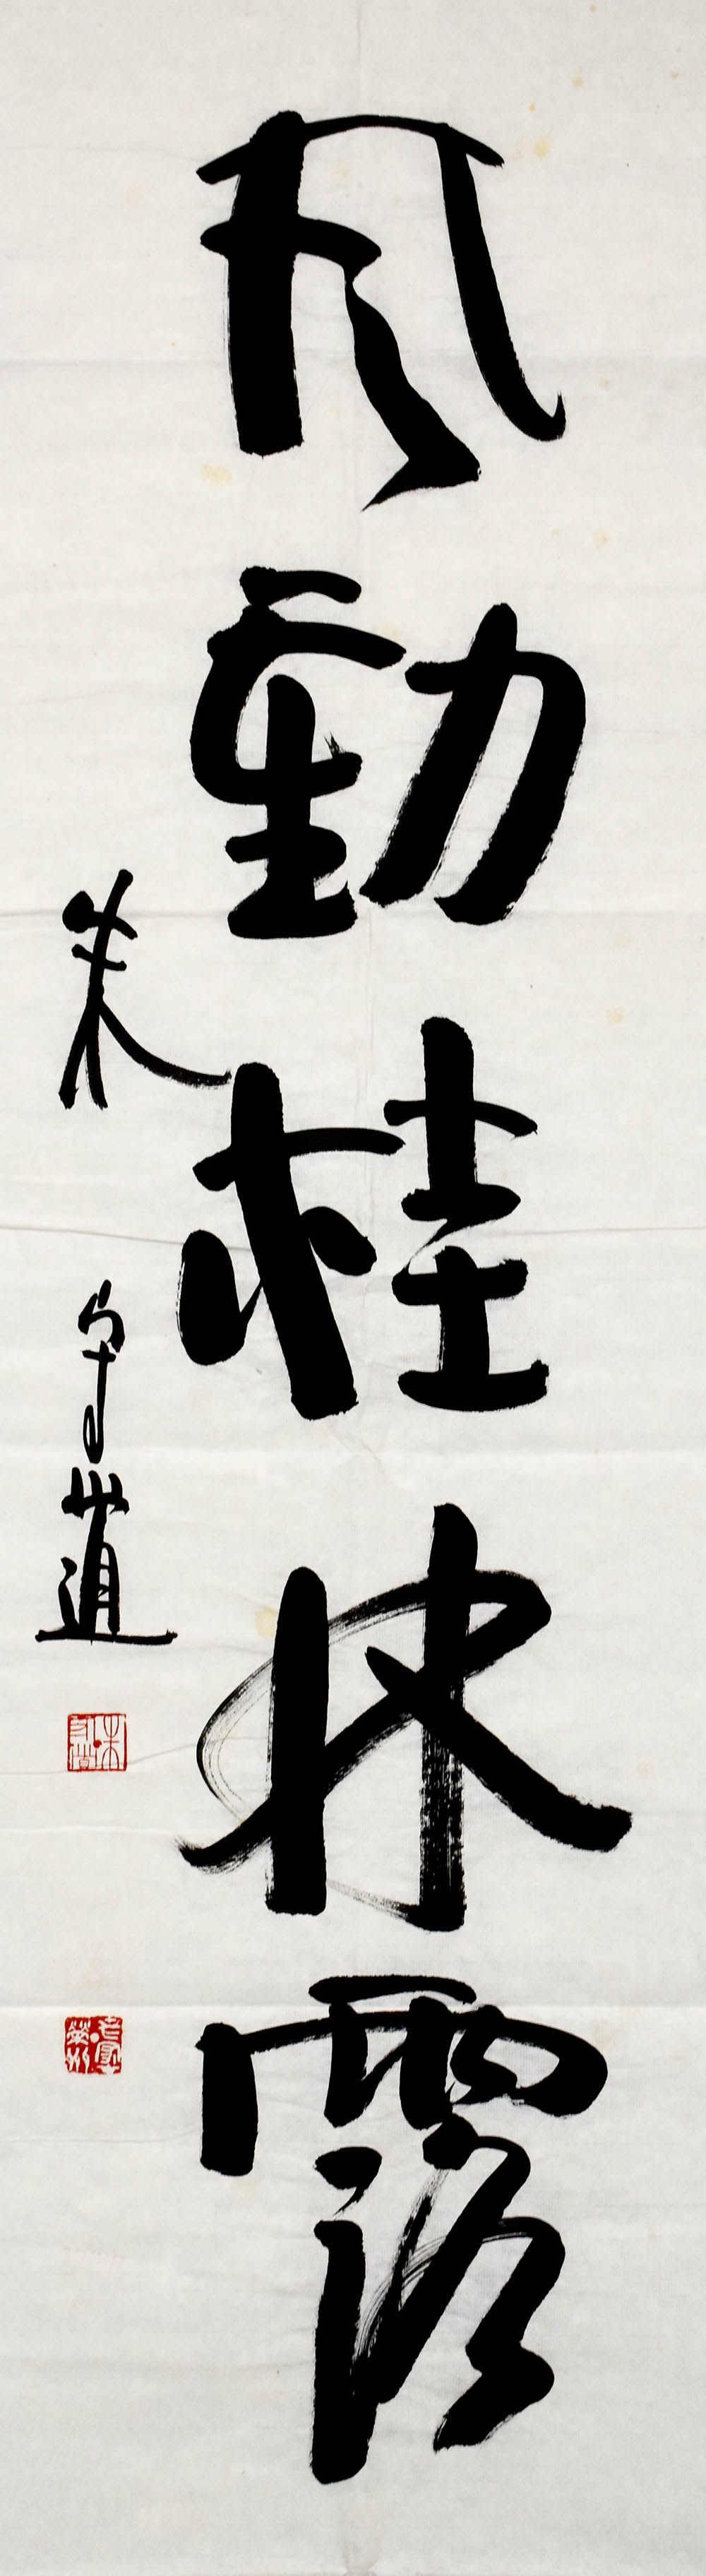 風動桂林露
朱守道